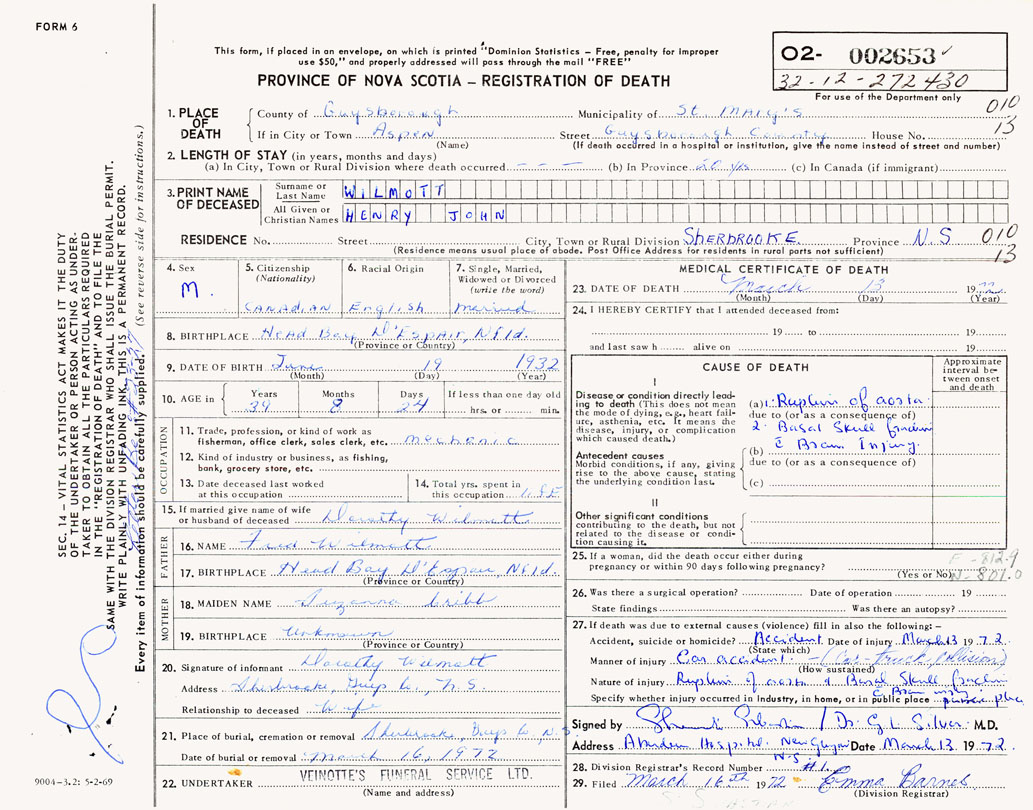 FORM 6
This form, if placed in an envelope, on which is printed "Dominion Statistics – Free, penalty for improper
use $50," and properly addressed will pass through the mail "FREE"
PROVINCE OF NOVA SCOTIA – REGISTRATION OF DEATH
O2- 002653
32-12-272430
For use of the Department only
010
13
SEC. 14 – VITAL STATISTICS ACT MAKES IT THE DUTY
OF THE UNDERTAKER OR PERSON ACTING AS UNDER-
TAKER TO OBTAIN ALL THE PARTICULARS REQUIRED
IN THE "REGISTRATION OF DEATH" AND TO FILE THE
SAME WITH THE DIVISION REGISTRAR WHO SHALL ISSUE THE BURIAL PERMIT.
WRITE PLAINLY WITH UNFADING INK. THIS IS A PERMANENT RECORD.
Every item of information should be carefully supplied. (See reverse side for instructions.)
1. PLACE OF DEATH
County of Guysborough Municipality of St. Mary's
If in City or Town Aspen Street Guysborough County House No.
(Name) (If death occurred in a hospital or institution, give the name instead of street and number)
2. LENGTH OF STAY (in years, months and days)
(a) In City, Town or Rural Division where death occurred - - - (b) In Province 20 yrs (c) In Canada (if immigrant)
3. PRINT NAME OF DECEASED
Surname or Last Name WILMOTT
All Given or Christian Names HENRY JOHN
RESIDENCE No. Street City, Town or Rural Division SHERBROOKE Province N.S 010
(Residence means usual place of abode. Post Office Address for residents in rural parts not sufficient) 13
4. Sex
M
5. Citizenship
(Nationality)
Canadian
6. Racial Origin
English
7. Single, Married,
Widowed or Divorced
(write the word)
Married
8. BIRTHPLACE Head Bay D'Espair, Nfld.
(Province or Country)
9. DATE OF BIRTH June 19 1932
(Month) (Day) (Year)
10. AGE in
Years Months Days If less than one day old
39 8 24 hrs. or min.
OCCUPATION
11. Trade, profession, or kind of work as
fisherman, office clerk, sales clerk, etc. mechanic
12. Kind of industry or business, as fishing,
bank, grocery store, etc.
13. Date deceased last worked
at this occupation
14. Total yrs. spent in
this occupation LIFE
15. If married give name of wife
or husband of deceased Dorothy Wilmott
FATHER
16. NAME Fred Wilmott
17. BIRTHPLACE Head Bay D'Espair, Nfld.
(Province or Country)
MOTHER
18. MAIDEN NAME Suzanna Cribb
19. BIRTHPLACE Unknown
(Province or Country)
20. Signature of informant Dorothy Wilmott
Address Sherbrooke, Guys Co., N.S
Relationship to deceased Wife
21. Place of burial, cremation or removal Sherbrooke, Guys Co, N.S
Date of burial or removal March 16, 1972
22. UNDERTAKER VEINOTTE'S FUNERAL SERVICE LTD.
(Name and address)
9004-3.2: 5-2-69
MEDICAL CERTIFICATE OF DEATH
23. DATE OF DEATH March 13 1972
(Month) (Day) (Year)
24. I HEREBY CERTIFY that I attended deceased from:
19 to 19
and last saw h alive on 19
CAUSE OF DEATH
Approximate
interval be-
tween onset
and death
I
Disease or condition directly lead-
ing to death (This does not mean
the mode of dying, e.g., heart fail-
ure, asthenia, etc. It means the
disease, injury, or complication
which caused death.)
(a) 1. Rupture of aorta
due to (or as a consequence of)
2. Basal Skull fracture
c̄ Brain Injury
Antecedent causes
Morbid conditions, if any, giving
rise to the above cause, stating
the underlying condition last.
(b)
due to (or as a consequence of)
(c)
II
Other significant conditions
contributing to the death, but not
related to the disease or condi-
tion causing it.
25. If a woman, did the death occur either during
pregnancy or within 90 days following pregnancy?
(Yes or No)
E - 812.9
N - 801.0
26. Was there a surgical operation? Date of operation 19
State findings Was there an autopsy?
27. If death was due to external causes (violence) fill in also the following: –
Accident, suicide or homicide? Accident Date of injury March 13 1972
(State which)
Manner of injury Car accident - (Car-truck collision)
(How sustained)
Nature of injury Rupture of aorta & Basal Skull fracture
c̄ Brain injury
Specify whether injury occurred in Industry, in home, or in public place
Signed by / Dr. G L Silver M.D.
Address Aberdeen Hospital, New Glasgow N.S Date March 13 1972
28. Division Registrar's Record Number #1
29. Filed March 16th 1972 Emma Barnes
(Division Registrar)